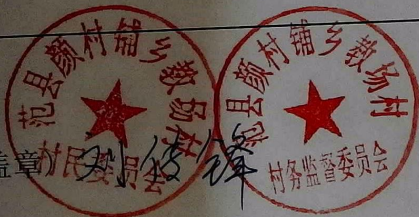 范县颜村铺乡教场村
村民委员会
范县颜村铺乡教场村
村务监督委员会
盖章)